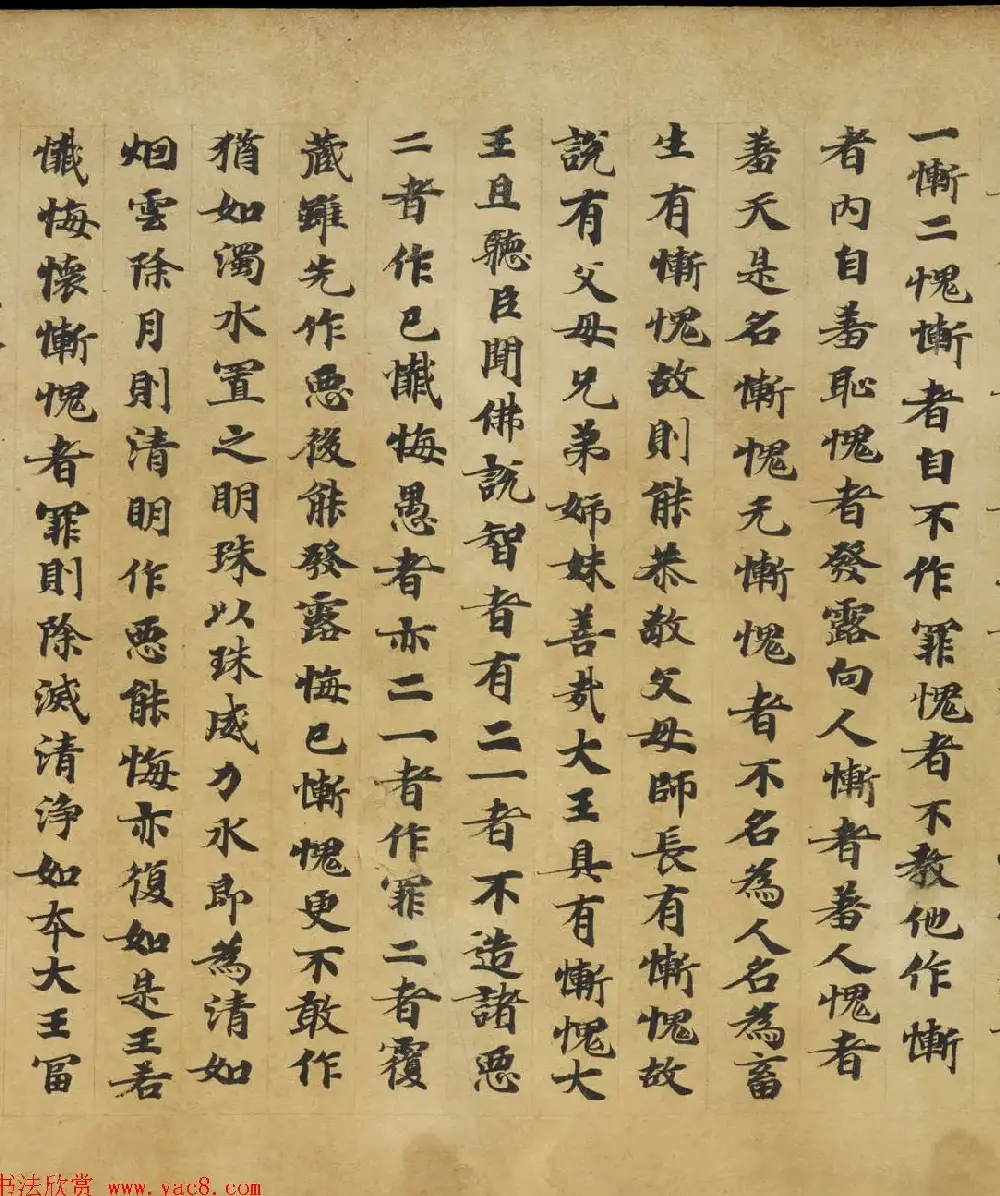 一慚二愧慚者自不作罪愧者不教他作慚
者內自羞恥愧者發露向人慚者羞人愧者
羞天是名慚愧无慚愧者不名為人名為畜
生有慚愧故則能恭敬父母師長有慚愧故
說有父母兄弟姊妹善哉大王具有慚愧大
王且聽臣聞佛說智者有二一者不造諸惡
二者作已懺悔愚者亦二一者作罪二者覆
藏雖先作惡後能發露悔已慚愧更不敢作
猶如濁水置之明珠以珠威力水即為清如
烟雲除月則清明作惡能悔亦復如是王若
懺悔懷慚愧者罪則除滅清淨如本大王冨
书法欣赏 www.yac8.com